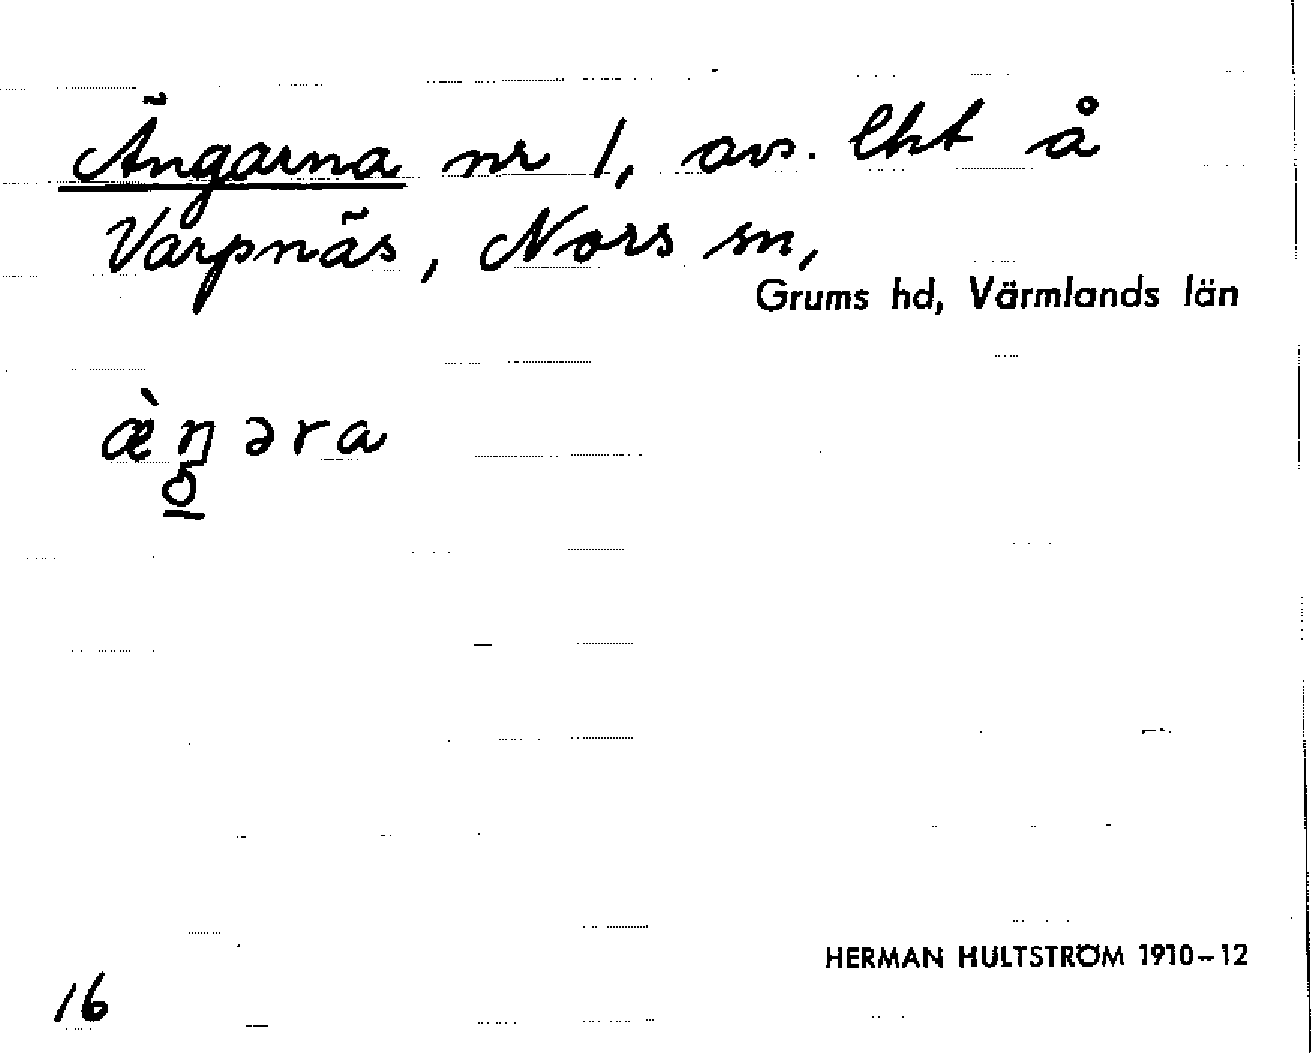 Ängarna nr 1, avs. lht å
Varpnäs, Nors sn,
Grums hd, Värmlands län
æ̀ŋəra
HERMAN HULTSTRÖM 1910–12
16